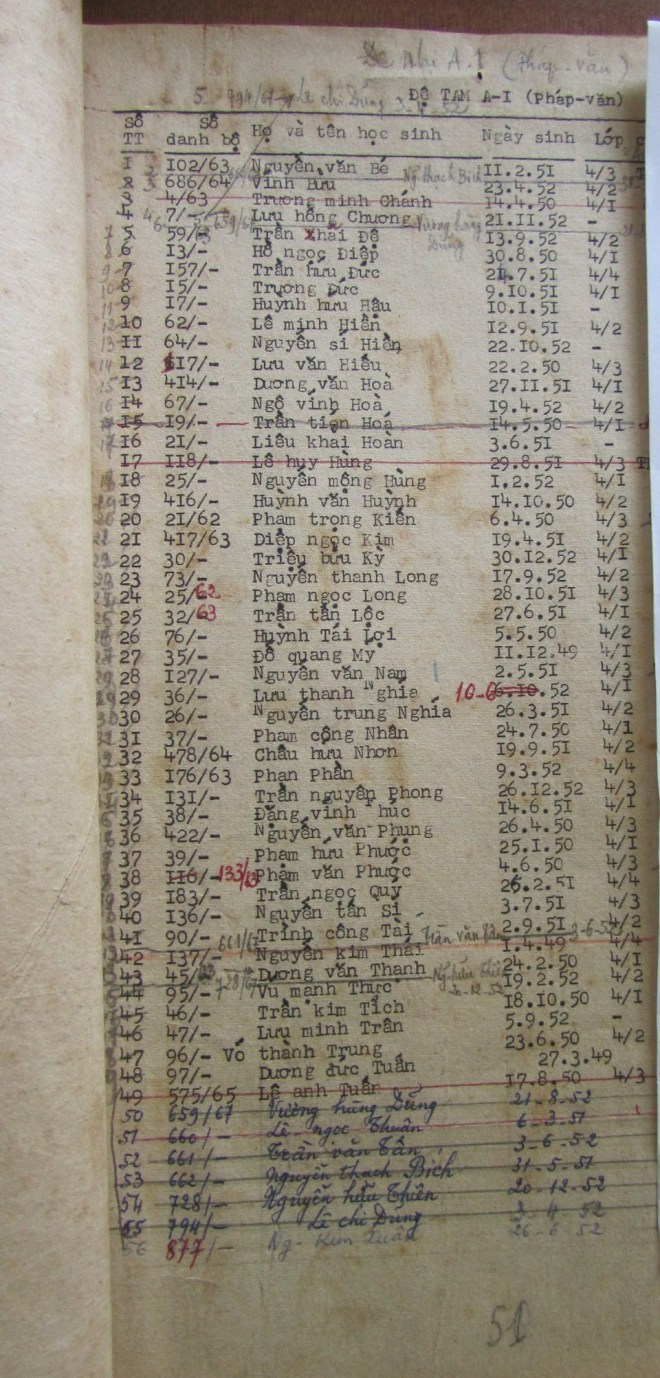 Đệ Nhị A-I (Pháp-văn)
5 794/67 Lê chí Dũng 3-4-52
ĐỆ TAM A-I (Pháp-văn)
Số TT Số danh bộ Họ và tên học sinh Ngày sinh Lớp
I I02/63 Nguyễn văn Bé II.2.5I 4/3
2 686/64 Vĩnh Bửu Ng thạch Bích 23.4.52 4/2
3 4/63 Trương minh Chánh I4.4.50 4/I
4 7/- Lưu hồng Chương Vương hùng Dũng 2I.II.52 -
5 59/- Trần khải Đệ I3.9.52 4/2
6 I3/- Hồ ngọc Điệp 30.8.50 4/I
7 I57/- Trần hữu Đức 24.7.5I 4/4
8 I5/- Trương Đức 9.I0.5I 4/I
9 I7/- Huỳnh hữu Hậu I0.I.5I -
I0 62/- Lê minh Hiền I2.9.5I 4/2
II 64/- Nguyễn sĩ Hiền 22.I0.52 -
I2 6I7/- Lưu văn Hiếu 22.2.50 4/3
I3 4I4/- Dương văn Hoà 27.II.5I 4/I
I4 67/- Ngô vĩnh Hoà I9.4.52 4/2
I5 I9/- Trần tiến Hoá I4.5.50 4/I
I6 2I/- Liêu khai Hoàn 3.6.5I -
I7 II8/- Lê huy Hùng 29.8.5I 4/3
I8 25/- Nguyễn mộng Hùng I.2.52 4/I
I9 4I6/- Huỳnh văn Huỳnh I4.I0.50 4/2
20 2I/62 Phạm trọng Kiên 6.4.50 4/3
2I 4I7/63 Diệp ngọc Kim I9.4.5I 4/2
22 30/- Triệu bửu Kỳ 30.I2.52 4/I
23 73/- Nguyễn thanh Long I7.9.52 4/2
24 25/62 Phạm ngọc Long 28.I0.5I 4/3
25 32/63 Trần tấn Lộc 27.6.5I 4/I
26 76/- Huỳnh Tái Lợi 5.5.50 4/2
27 35/- Đỗ quang Mỹ II.I2.49 4/I
28 I27/- Nguyễn văn Nam 2.5.5I 4/3
29 36/- Lưu thanh Nghĩa 10-6 6.I0.52 4/I
30 26/- Nguyễn trung Nghĩa 26.3.5I 4/2
3I 37/- Phạm công Nhân 24.7.50 4/1
32 478/64 Châu hữu Nhơn I9.9.5I 4/2
33 I76/63 Phan Phần 9.3.52 4/4
34 I3I/- Trần nguyên Phong 26.I2.52 4/3
35 38/- Đặng vĩnh Phúc I4.6.5I 4/I
36 422/- Nguyễn văn Phụng 26.4.50 4/3
37 39/- Phạm hữu Phước 25.I.50 4/I
38 II6/- 133/63 Phạm văn Phước 4.6.50 4/3
39 I83/- Trần ngọc Quý 26.2.5I 4/4
40 I36/- Nguyễn tấn Sĩ 3.7.5I 4/3
4I 90/- Trịnh công Tài 2.9.5I 4/2
661/67 Trần văn Tân 3-6-52
42 I37/- Nguyễn kim Thái I.4.49 4/4
43 45/63 Dương văn Thanh 24.2.50 4/I
728/67 Ng hữu Thiên 20-12-52
44 95/- Vũ mạnh Thực I9.2.52 4/2
45 46/- Trần kim Tích I8.I0.50 4/I
46 47/- Lưu minh Trân 5.9.52 -
47 96/- Võ thành Trung 23.6.50 4/2
48 97/- Dương đức Tuấn 27.3.49
49 575/65 Lê anh Tuấn I7.8.50 4/3
50 659/67 Vương hùng Dũng 21-8-52
51 660/- Lê ngọc Thuân 6-3-51
52 661/- Trần văn Tân 3-6-52
53 662/- Nguyễn thạch Bích 31-5-51
54 728/- Nguyễn hữu Thiên 20-12-52
55 794/- Lê chí Dũng 3-4-52
56 877/- Ng- Kim Xuân 26-6-52
51